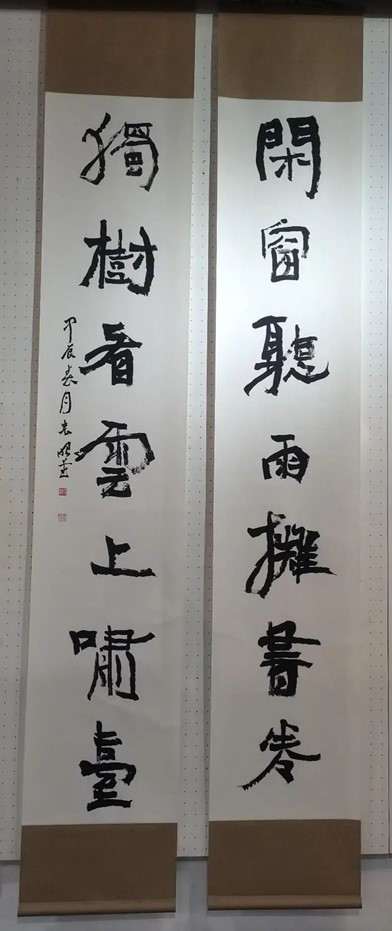 閑窗聽雨攤書卷
獨樹看雲上嘯臺
甲辰春月